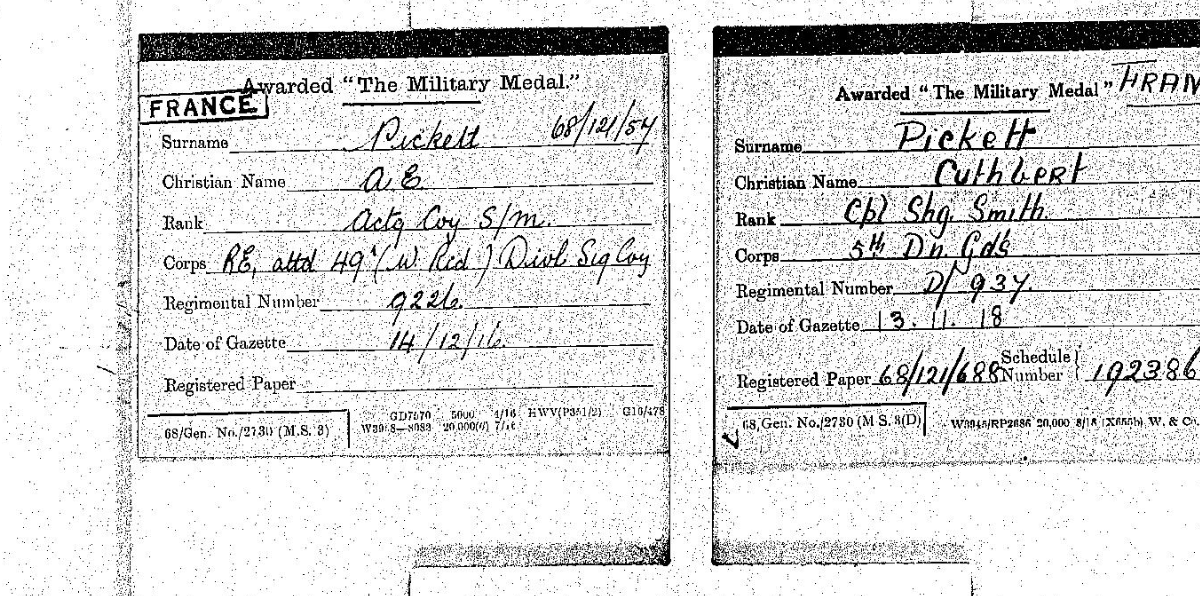 Awarded "The Military Medal."
FRANCE
Surname Pickett 68/121/54
Christian Name A E
Rank Actg Coy S/M.
Corps RE, attd 49 (W Rid) Divl Sig Coy
Regimental Number 9226.
Date of Gazette 14/12/16.
Registered Paper
68/Gen. No./2730 (M.S. 3)
GD7570 5000 4/16 HWV(P351/2) G16/478
20,000(6) 7/16
Awarded "The Military Medal" FRAN
Surname Pickett
Christian Name Cuthbert
Rank Cpl Shg. Smith
Corps 5th Dn Gds
Regimental Number D/ 937.
Date of Gazette 13. 11. 18
Registered Paper 68/121/688 Schedule Number 192386
68/Gen. No./2730 (M.S. 3(D)
20,000 8/18 W. & Co.